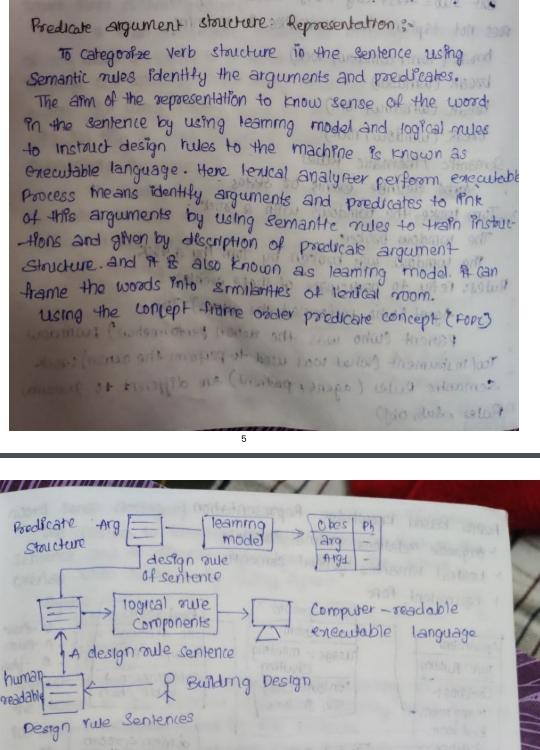 Predicate argument structure: Representation :-
To categorize verb structure in the sentence using
Semantic rules identify the arguments and predicates.
The aim of the representation to know sense of the word
in the sentence by using learning model and logical rules
to instruct design rules to the machine is known as
executable language. Here lexical analyser perform executable
Process means identify arguments and predicates to link
of this arguments by using semantic rules to train instruc-
-tions and given by description of predicate argument
Structure. and it is also known as learning model. it can
frame the words into similarities of lexical room.
Using the concept frame order predicate concept (FOPC)
5
Predicate Arg
Structure
learning
model
Obes Ph
arg -
Arg1 -
design rule
of sentence
logical rule
Components
Computer-readable
executable language
A design rule sentence
human
readable
Building Design
Design rule Sentences